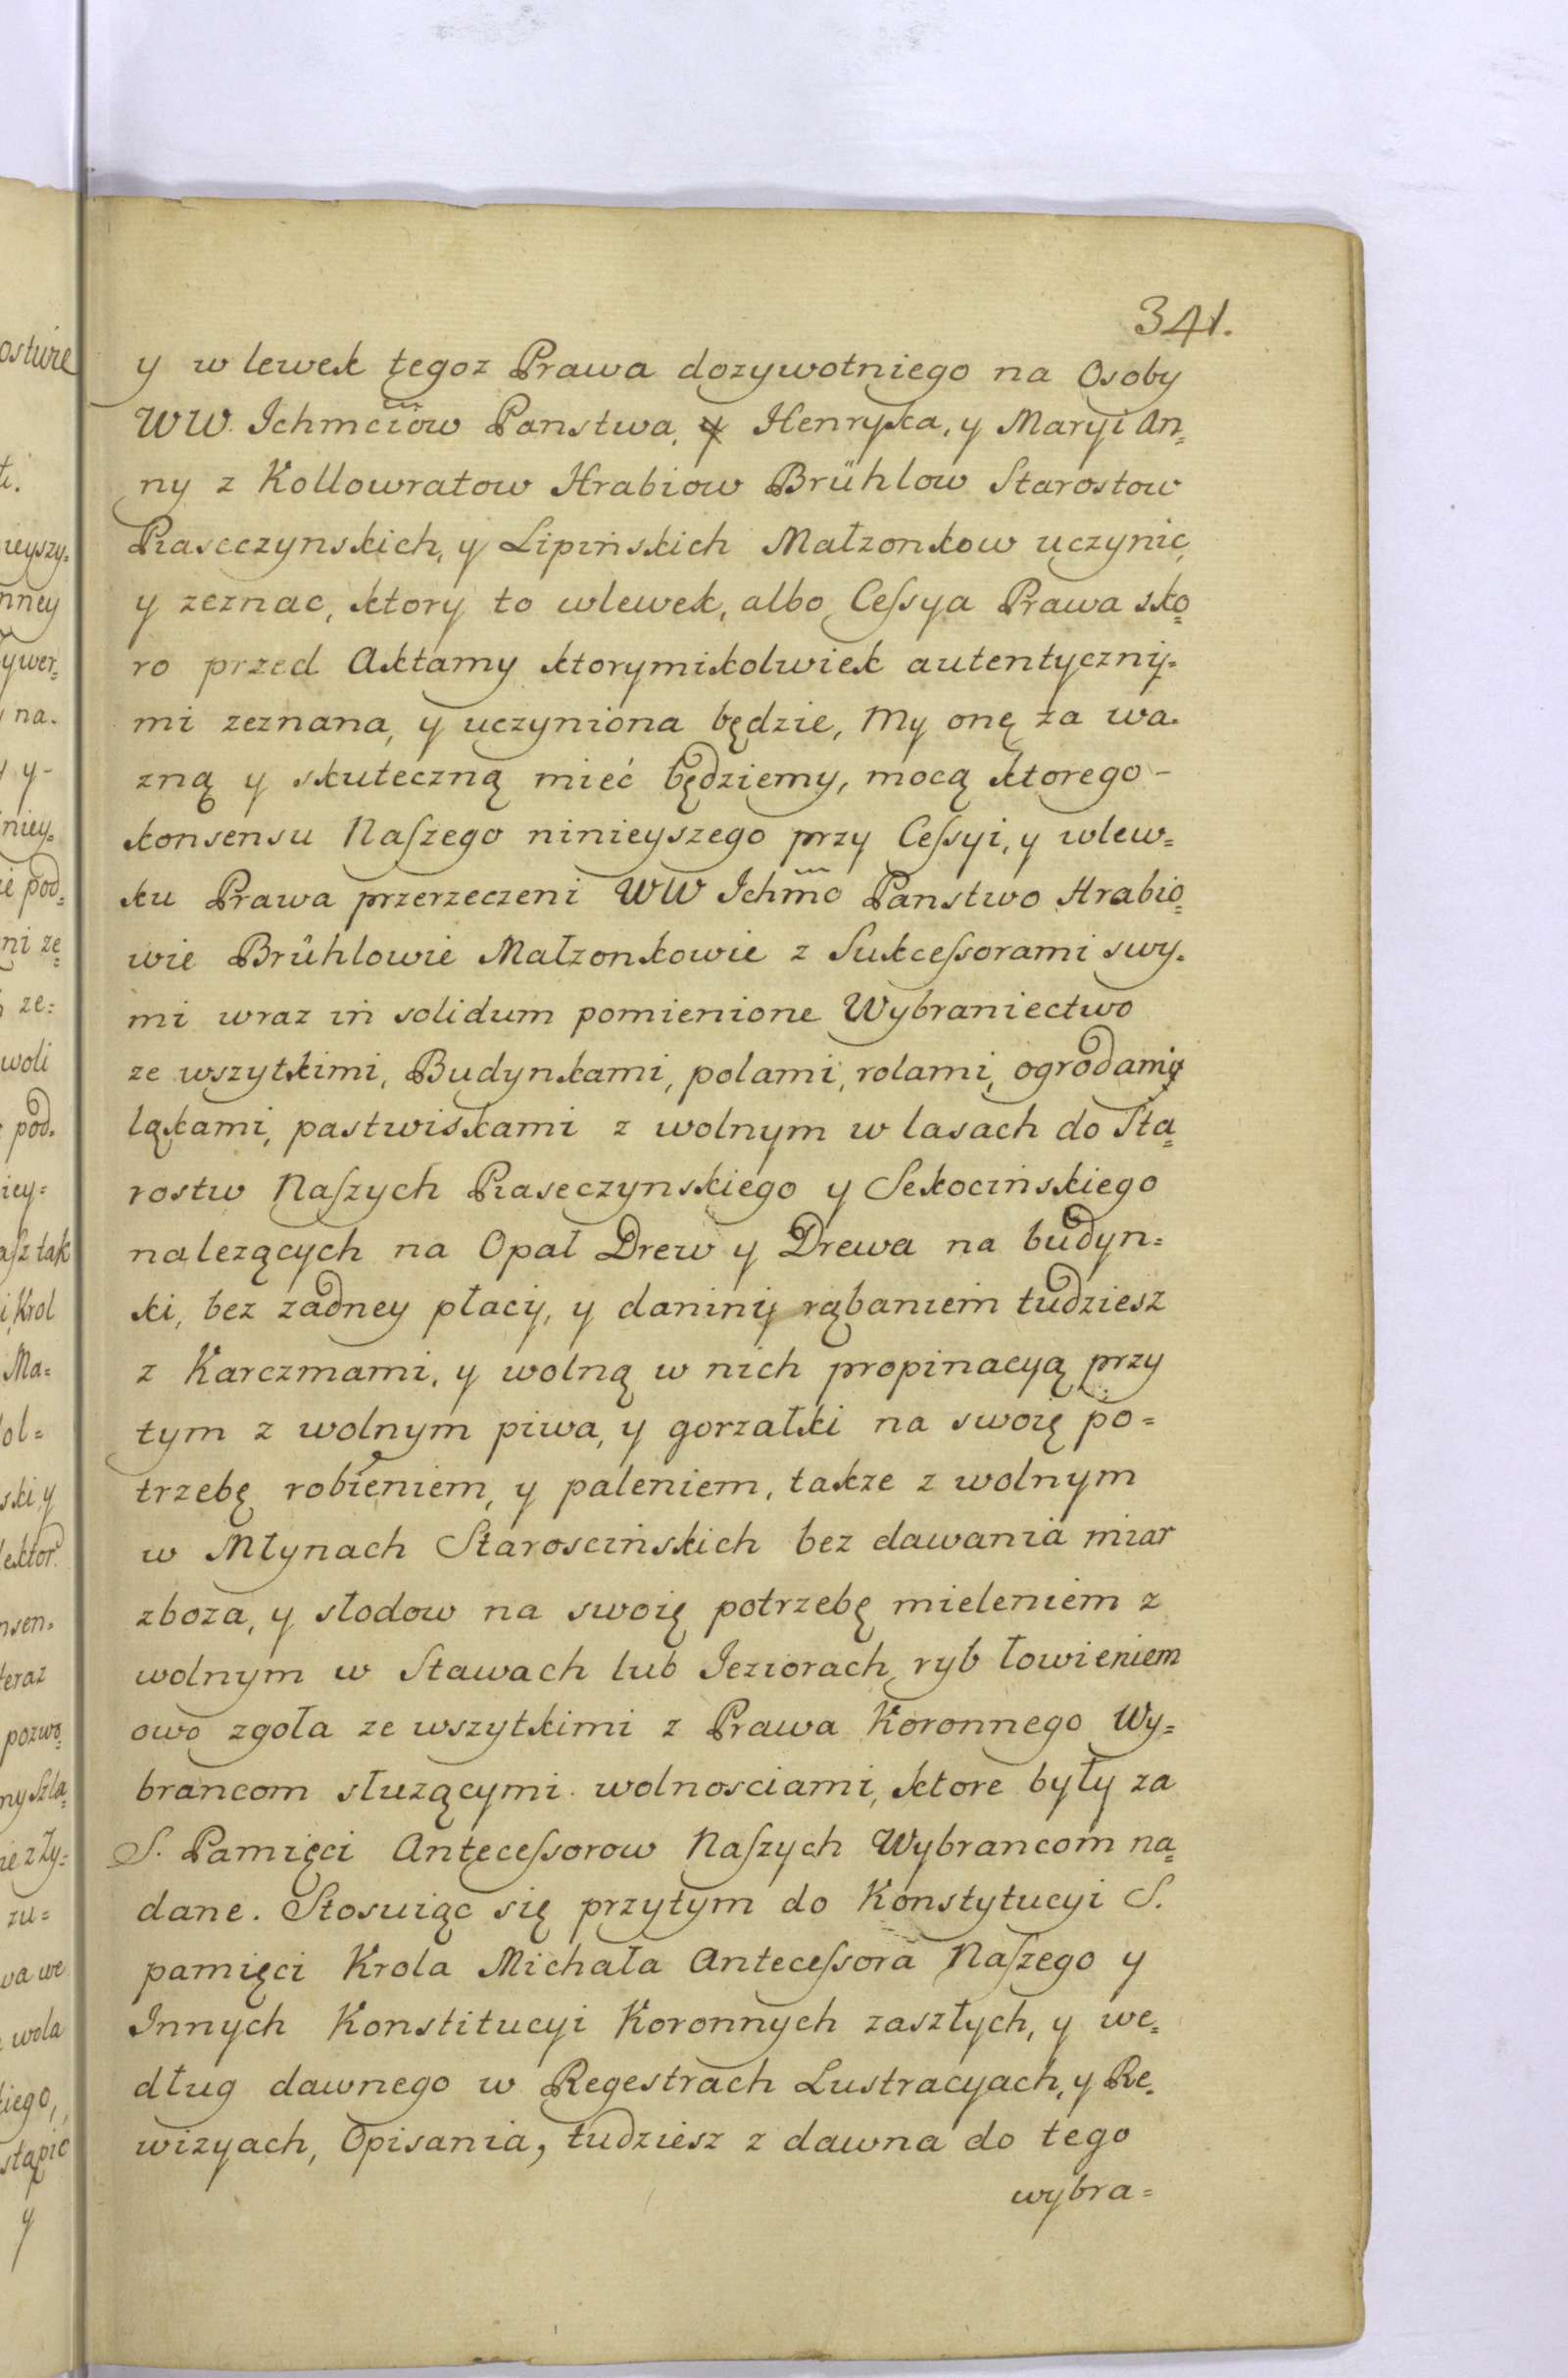 341.
y wlewek tegoz Prawa dozywotniego na Osoby
WW. Ichmciow Panstwa, y Henryka, y Maryi An=
ny z Kollowratow Hrabiow Brühlow Starostow
Piaseczynskich, y Lipińskich Małzonkow uczynic,
y zeznac, ktory to wlewek, albo Ceſsya Prawa sko=
ro przed Aktamy ktorymikolwiek autentyczny=
mi zeznana, y uczyniona będzie, My onę za wa=
zną y skuteczną mieć będziemy, mocą ktorego -
konsensu Naſzego ninieyszego przy Ceſsyi, y wlew=
ku Prawa przerzeczeni WW Ichmo Panstwo Hrabio=
wie Brühlowie Małzonkowie z Sukceſsorami swy=
mi wraz in solidum pomienione Wybraniectwo
ze wszytkimi, Budynkami, polami, rolami, ogrodami,
ląkami, pastwiskami z wolnym w lasach do Sta=
rostw Naſzych Piaseczynskiego y Sekocińskiego
nalezących na Opał Drew y Drewa na budyn=
ki, bez zadney płacy, y daniny rąbaniem tudziesz
z Karczmami, y wolną w nich propinacyą przy
tym z wolnym piwa, y gorzałki na swoię po=
trzebę robieniem, y paleniem, takze z wolnym
w Młynach Staroscińskich bez dawania miar
zboza, y słodow na swoię potrzebę mieleniem z
wolnym w Stawach lub Ieziorach ryb łowieniem
owo zgoła ze wszytkimi z Prawa Koronnego Wy=
brancom słuzącymi wolnosciami, ktore były za
S. Pamięci Anteceſsorow Naſzych Wybrancom na=
dane. Stosuiąc się przytym do Konstytucyi S.
pamięci Krola Michała Anteceſsora Naſzego y
Innych Konstitucyi Koronnych zaszłych, y we=
dług dawnego w Regestrach Lustracyach, y Re=
wizyach, Opisania, tudziesz z dawna do tego
wybra=